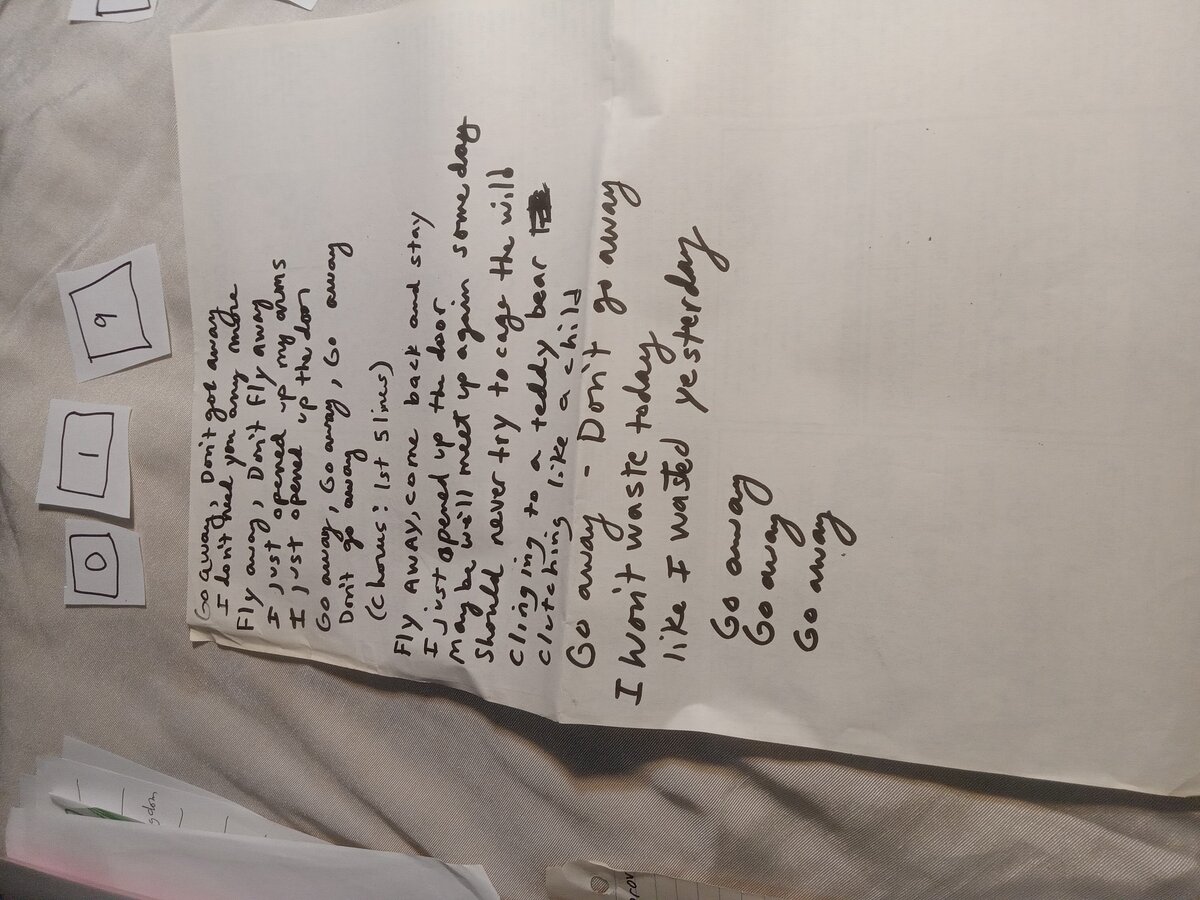 0
1
9
Go away, Don't go away
I don't need you any more
Fly away, Don't Fly away
I just opened up my arms
I just opened up the door
Go away, Go away, Go away
Don't go away
(chorus: 1st 5 lines)
Fly Away, come back and stay
I just opened up the door
maybe we'll meet up again some day
should never try to cage the wild
clinging to a teddy bear
clutching like a child
Go away - Don't go away
I won't waste today
like I wasted yesterday
Go away
Go away
Go away